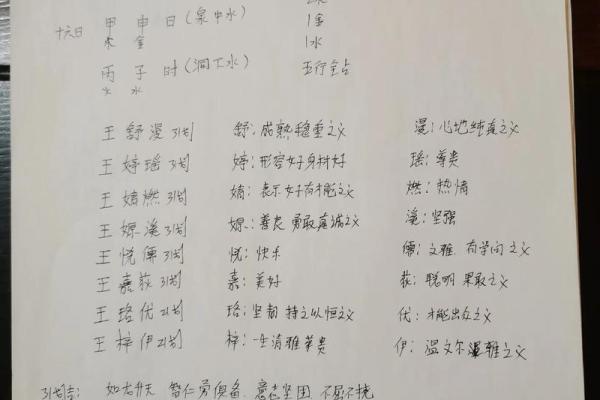 十六日 甲 申 日(泉中水) 1金
木 金 1水
丙 子 时(涧下水) 五行全占
火 水
王 舒漫 31划 舒:成熟稳重之义 漫:心地纯真之义
王 婷瑶 31划 婷:形容好身材好 瑶:尊贵
王 嫡燃 31划 嫡:表示女子有才能之义 燃:热情
王 嫄溪 31划 嫄:善良 勇敢真诚之义 溪:坚强
王 悦儒 31划 悦:快乐 儒:文雅 有学问之义
王 嘉荻 31划 嘉:美好 荻:聪明 果敢之义
王 珞优 21划 珞:坚韧 持之以恒之义 优:才能出众之义
王 梓伊 21划 梓:一生清雅荣贵 伊:温文尔雅之义
31划吉: 如龙升天 智仁勇俱备 意志坚固 不屈不挠